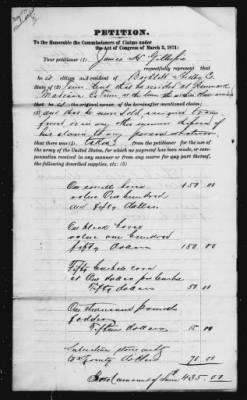 PETITION.
To the Honorable the Commissioners of Claims under
the Act of Congress of March 3, 1871:
Your petitioner James H. Gillespie
respectfully represent that
he is citizen and resident of
State of Tenn and that he resided at Denmark
Madison Co Tenn at the time
that he is the original owner of the hereinafter mentioned claim;
and that he never sold
his claim to any person whatsoever
that there was taken from the petitioner for the use of
the army of the United States, for which no payment has been made, or com-
pensation received in any manner or from any source for any part thereof,
the following described supplies:
One sorrel horse 150 00
value One hundred
and fifty dollars
One black horse
value one hundred
fifty dollars 150 00
Fifty bushels corn
at One dollar per bushel
Fifty dollars 50 00
One thousand pounds
fodder
Fifteen dollars 15 00
70 00
Total amount of claim 435.00